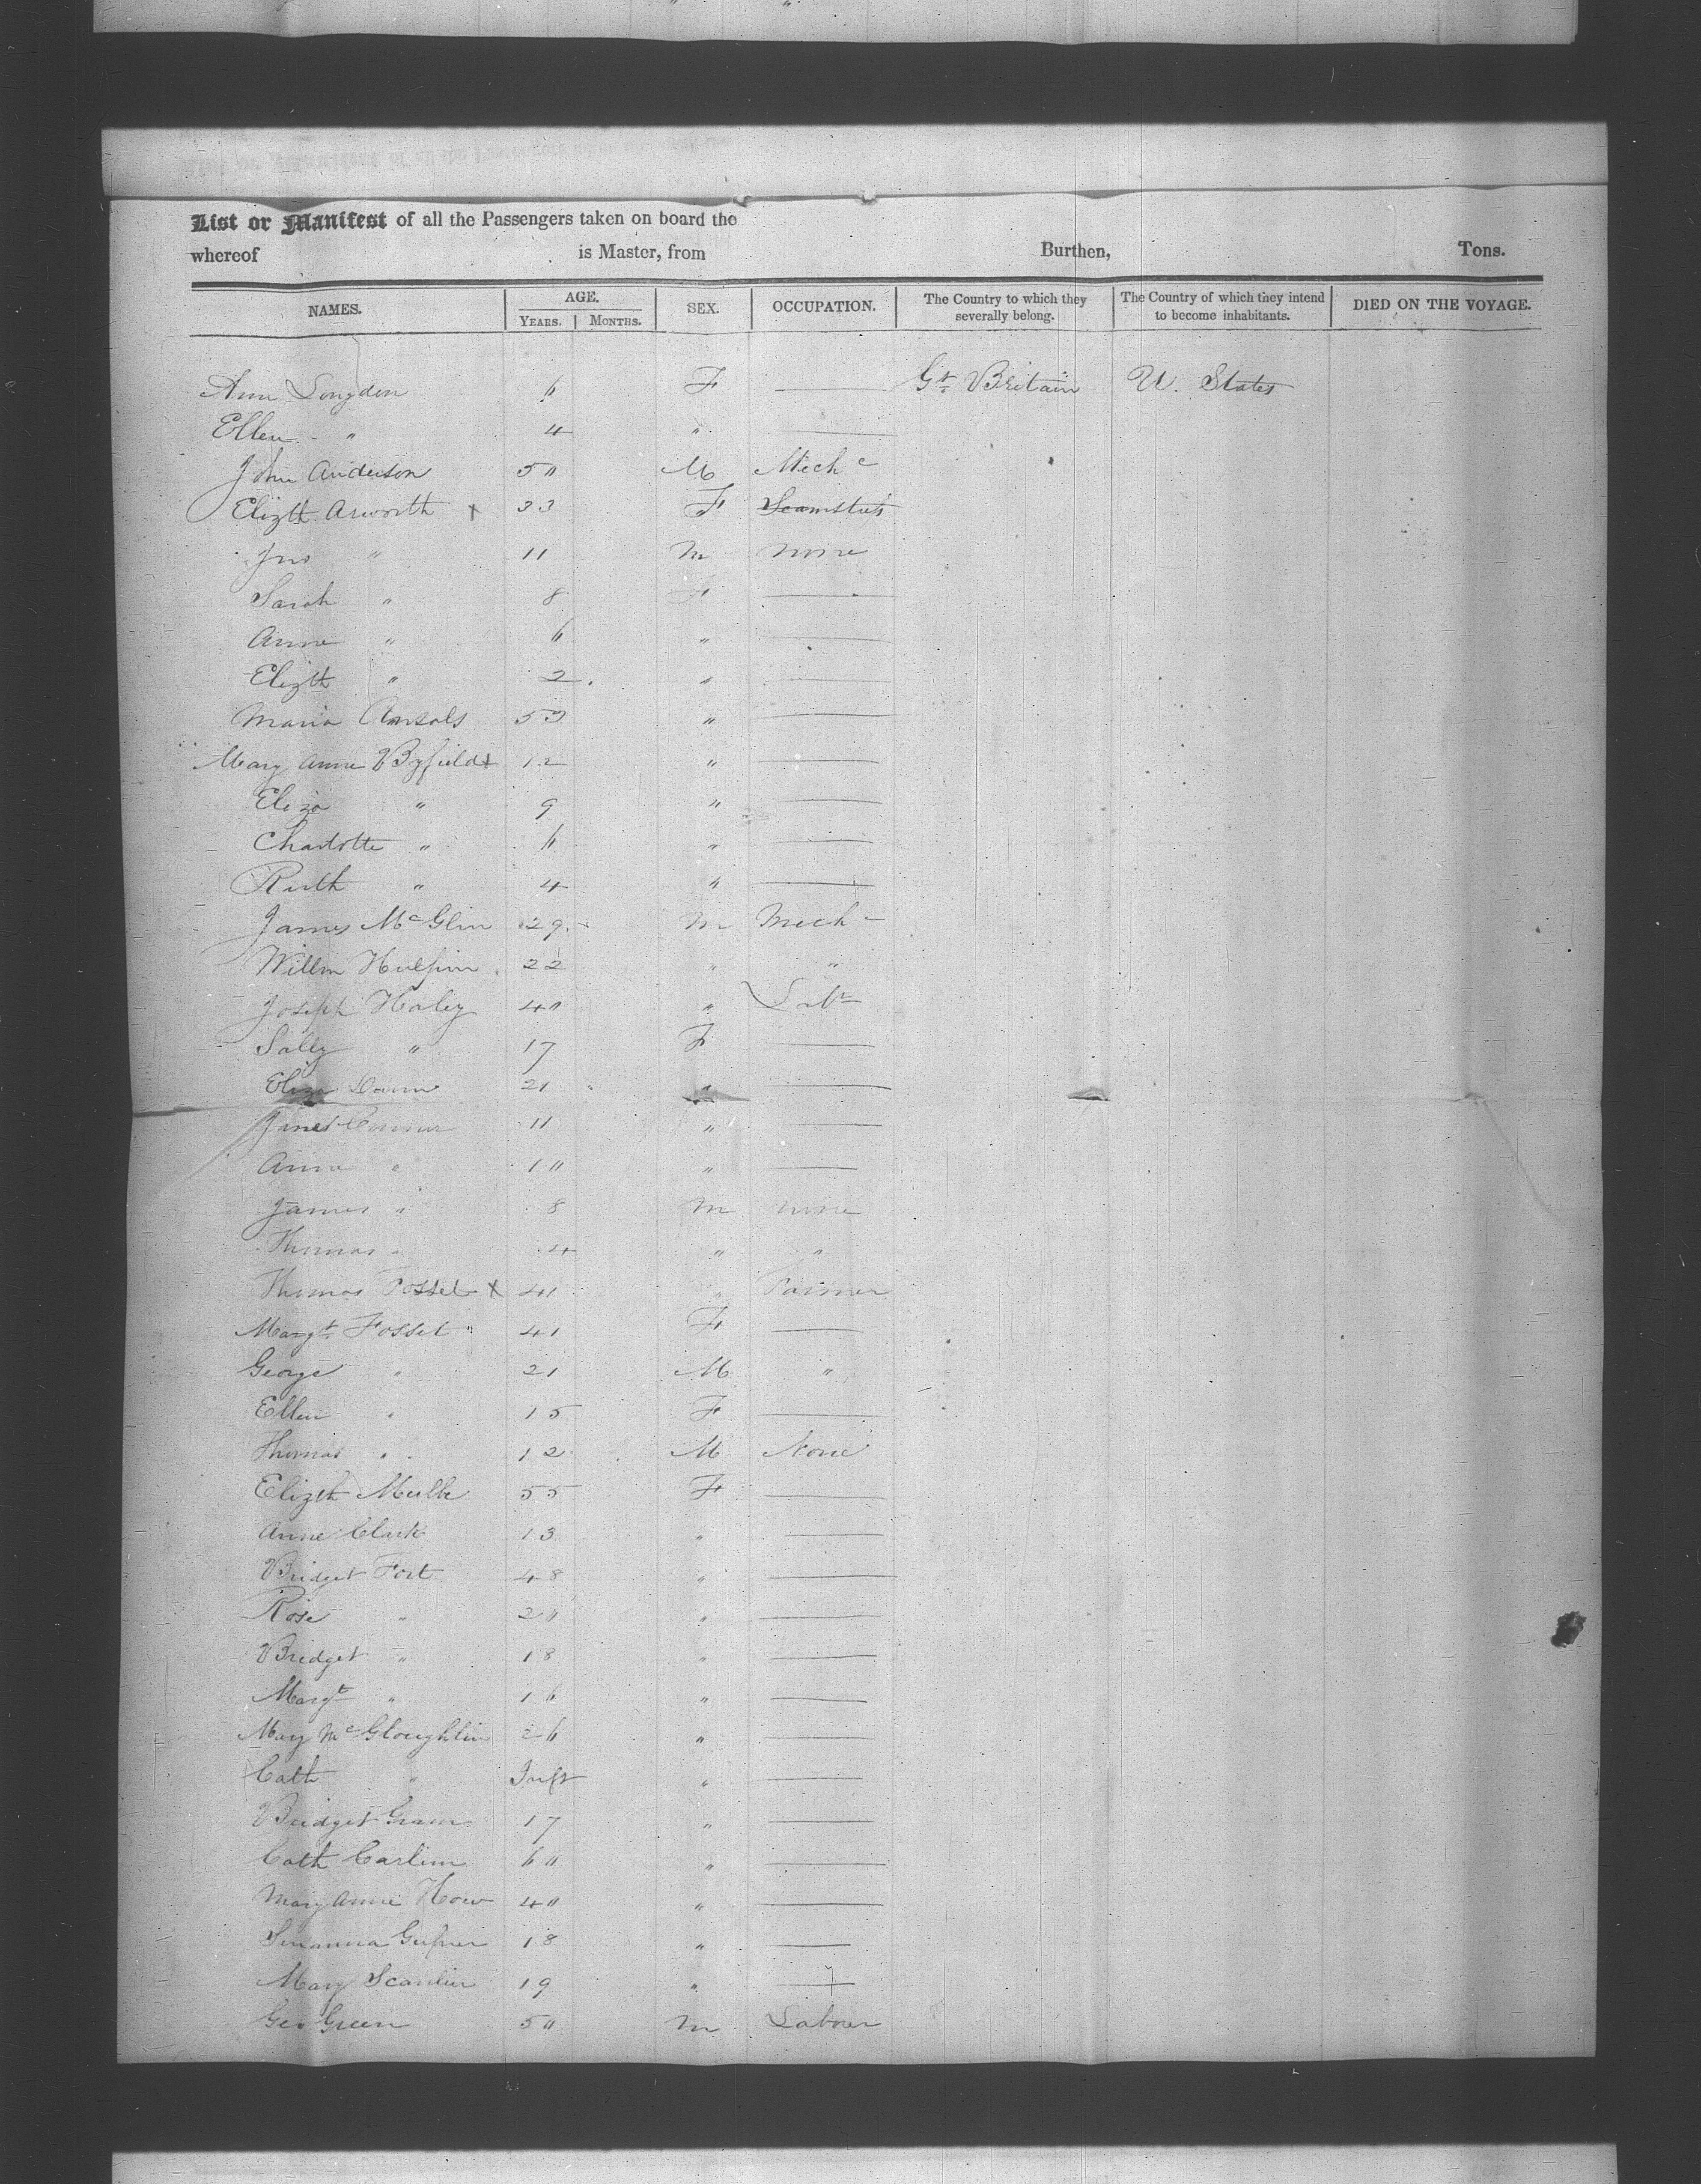 List or Manifest of all the Passengers taken on board the
whereof is Master, from Burthen, Tons.
NAMES. AGE. SEX. OCCUPATION. The Country to which they severally belong. The Country of which they intend to become inhabitants. DIED ON THE VOYAGE.
YEARS. MONTHS.
Ann Longden 6 F — Gt Britain U. States
Ellen " 4 " —
John Anderson 50 M Mech c
Elizth Arworth x 33 F Seamstress
Jno " 11 M none
Sarah " 8 F —
Anne " 6 " —
Elizth " 2 " —
Maria 53 " —
Mary Anne Byfield x 12 " —
Eliza " 9 " —
Charlotte " 6 " —
Ruth " 4 " —
James McGlin 29 M Mech c
Willm 22 " "
Joseph Haley 40 " Labr
Sally " 17 F —
Eliza 21 " —
Janet Connor 11 " —
Anne " 10 " —
James " 8 M none
Thomas " 4 " "
Thomas Fosset x 41 " Farmer
Margt Fosset " 41 F —
George " 21 M "
Ellen " 15 F —
Thomas " 12 M None
Elizth 55 F —
Anne Clark 13 " —
Bridget Fort 48 " —
Rose " 20 " —
Bridget " 18 " —
Margt " 16 " —
Mary McGloughlin 26 " —
Cath " Inft " —
Bridget 17 " —
Cath Carlin 60 " —
Mary Anne How 40 " —
Susanna 18 " —
Mary Scanlin 19 " —
Geo Green 50 M Labour